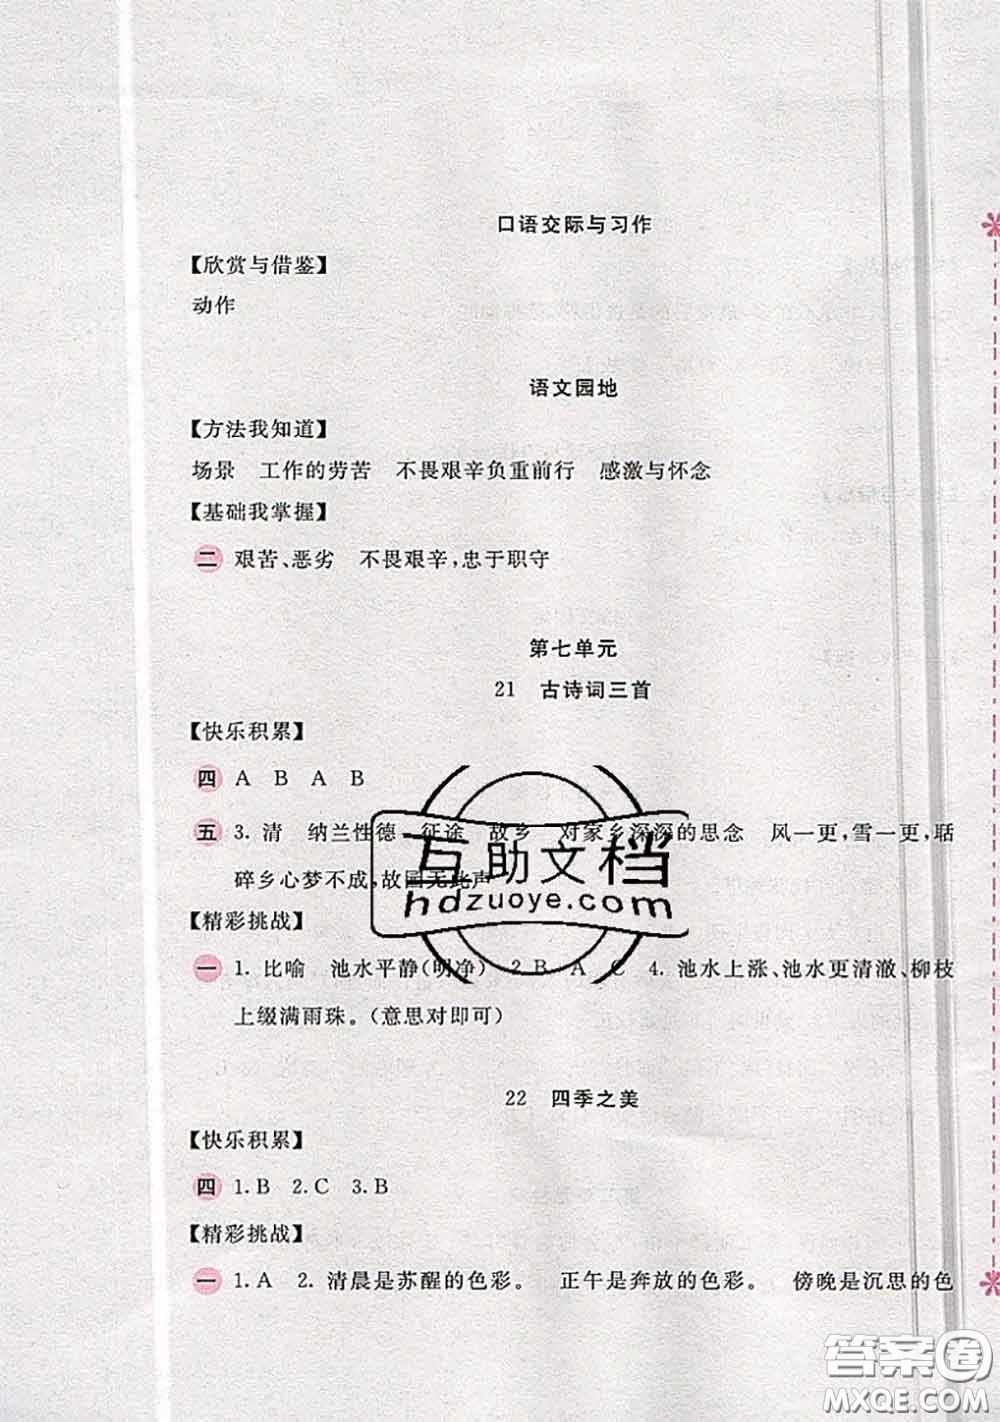 口语交际与习作
【欣赏与借鉴】
动作
语文园地
【方法我知道】
场景 工作的劳苦 不畏艰辛负重前行 感激与怀念
【基础我掌握】
二 艰苦、恶劣 不畏艰辛,忠于职守
第七单元
21 古诗词三首
【快乐积累】
四 A B A B
五 3. 清 纳兰性德 征途 故乡 对家乡深深的思念 风一更,雪一更,聒
碎乡心梦不成,故园无此声
【精彩挑战】
一 1. 比喻 池水平静(明净) 2. B A C 4. 池水上涨、池水更清澈、柳枝
上缀满雨珠。(意思对即可)
22 四季之美
【快乐积累】
四 1. B 2. C 3. B
【精彩挑战】
一 1. A 2. 清晨是苏醒的色彩。 正午是奔放的色彩。 傍晚是沉思的色
互助文档
hdzuoye.com
答案圈
MXQE.COM